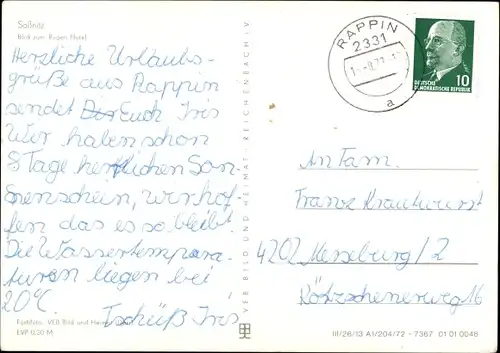 Saßnitz
Blick zum Rügen Hotel
Herzliche Urlaubs-
grüße aus Rappin
sendet Euch Iris
Wir haben schon
8 Tage herrlichen Son-
nenschein, wir hof-
fen das es so bleibt.
Die Wassertempera-
turen liegen bei
20°C.
Tschüß Iris
Farbfoto: VEB Bild und Heimat
EVP 0,20 M
VEB BILD UND HEIMAT · REICHENBACH i. V.
RAPPIN
2331
a
10
DEUTSCHE
DEMOKRATISCHE REPUBLIK
An Fam.
Franz Krautwurst
4202 Merseburg/2
Kötzschenerweg 16
III/26/13 A1/204/72 - 7367 01 01 0046